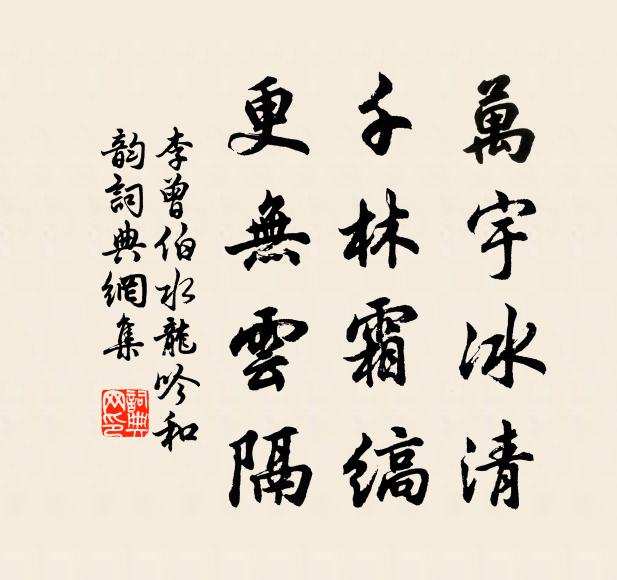 萬宇冰清
千林霜缟
更無雲隔
李曾伯水龍吟和
韵詞典網集
詞典
网印